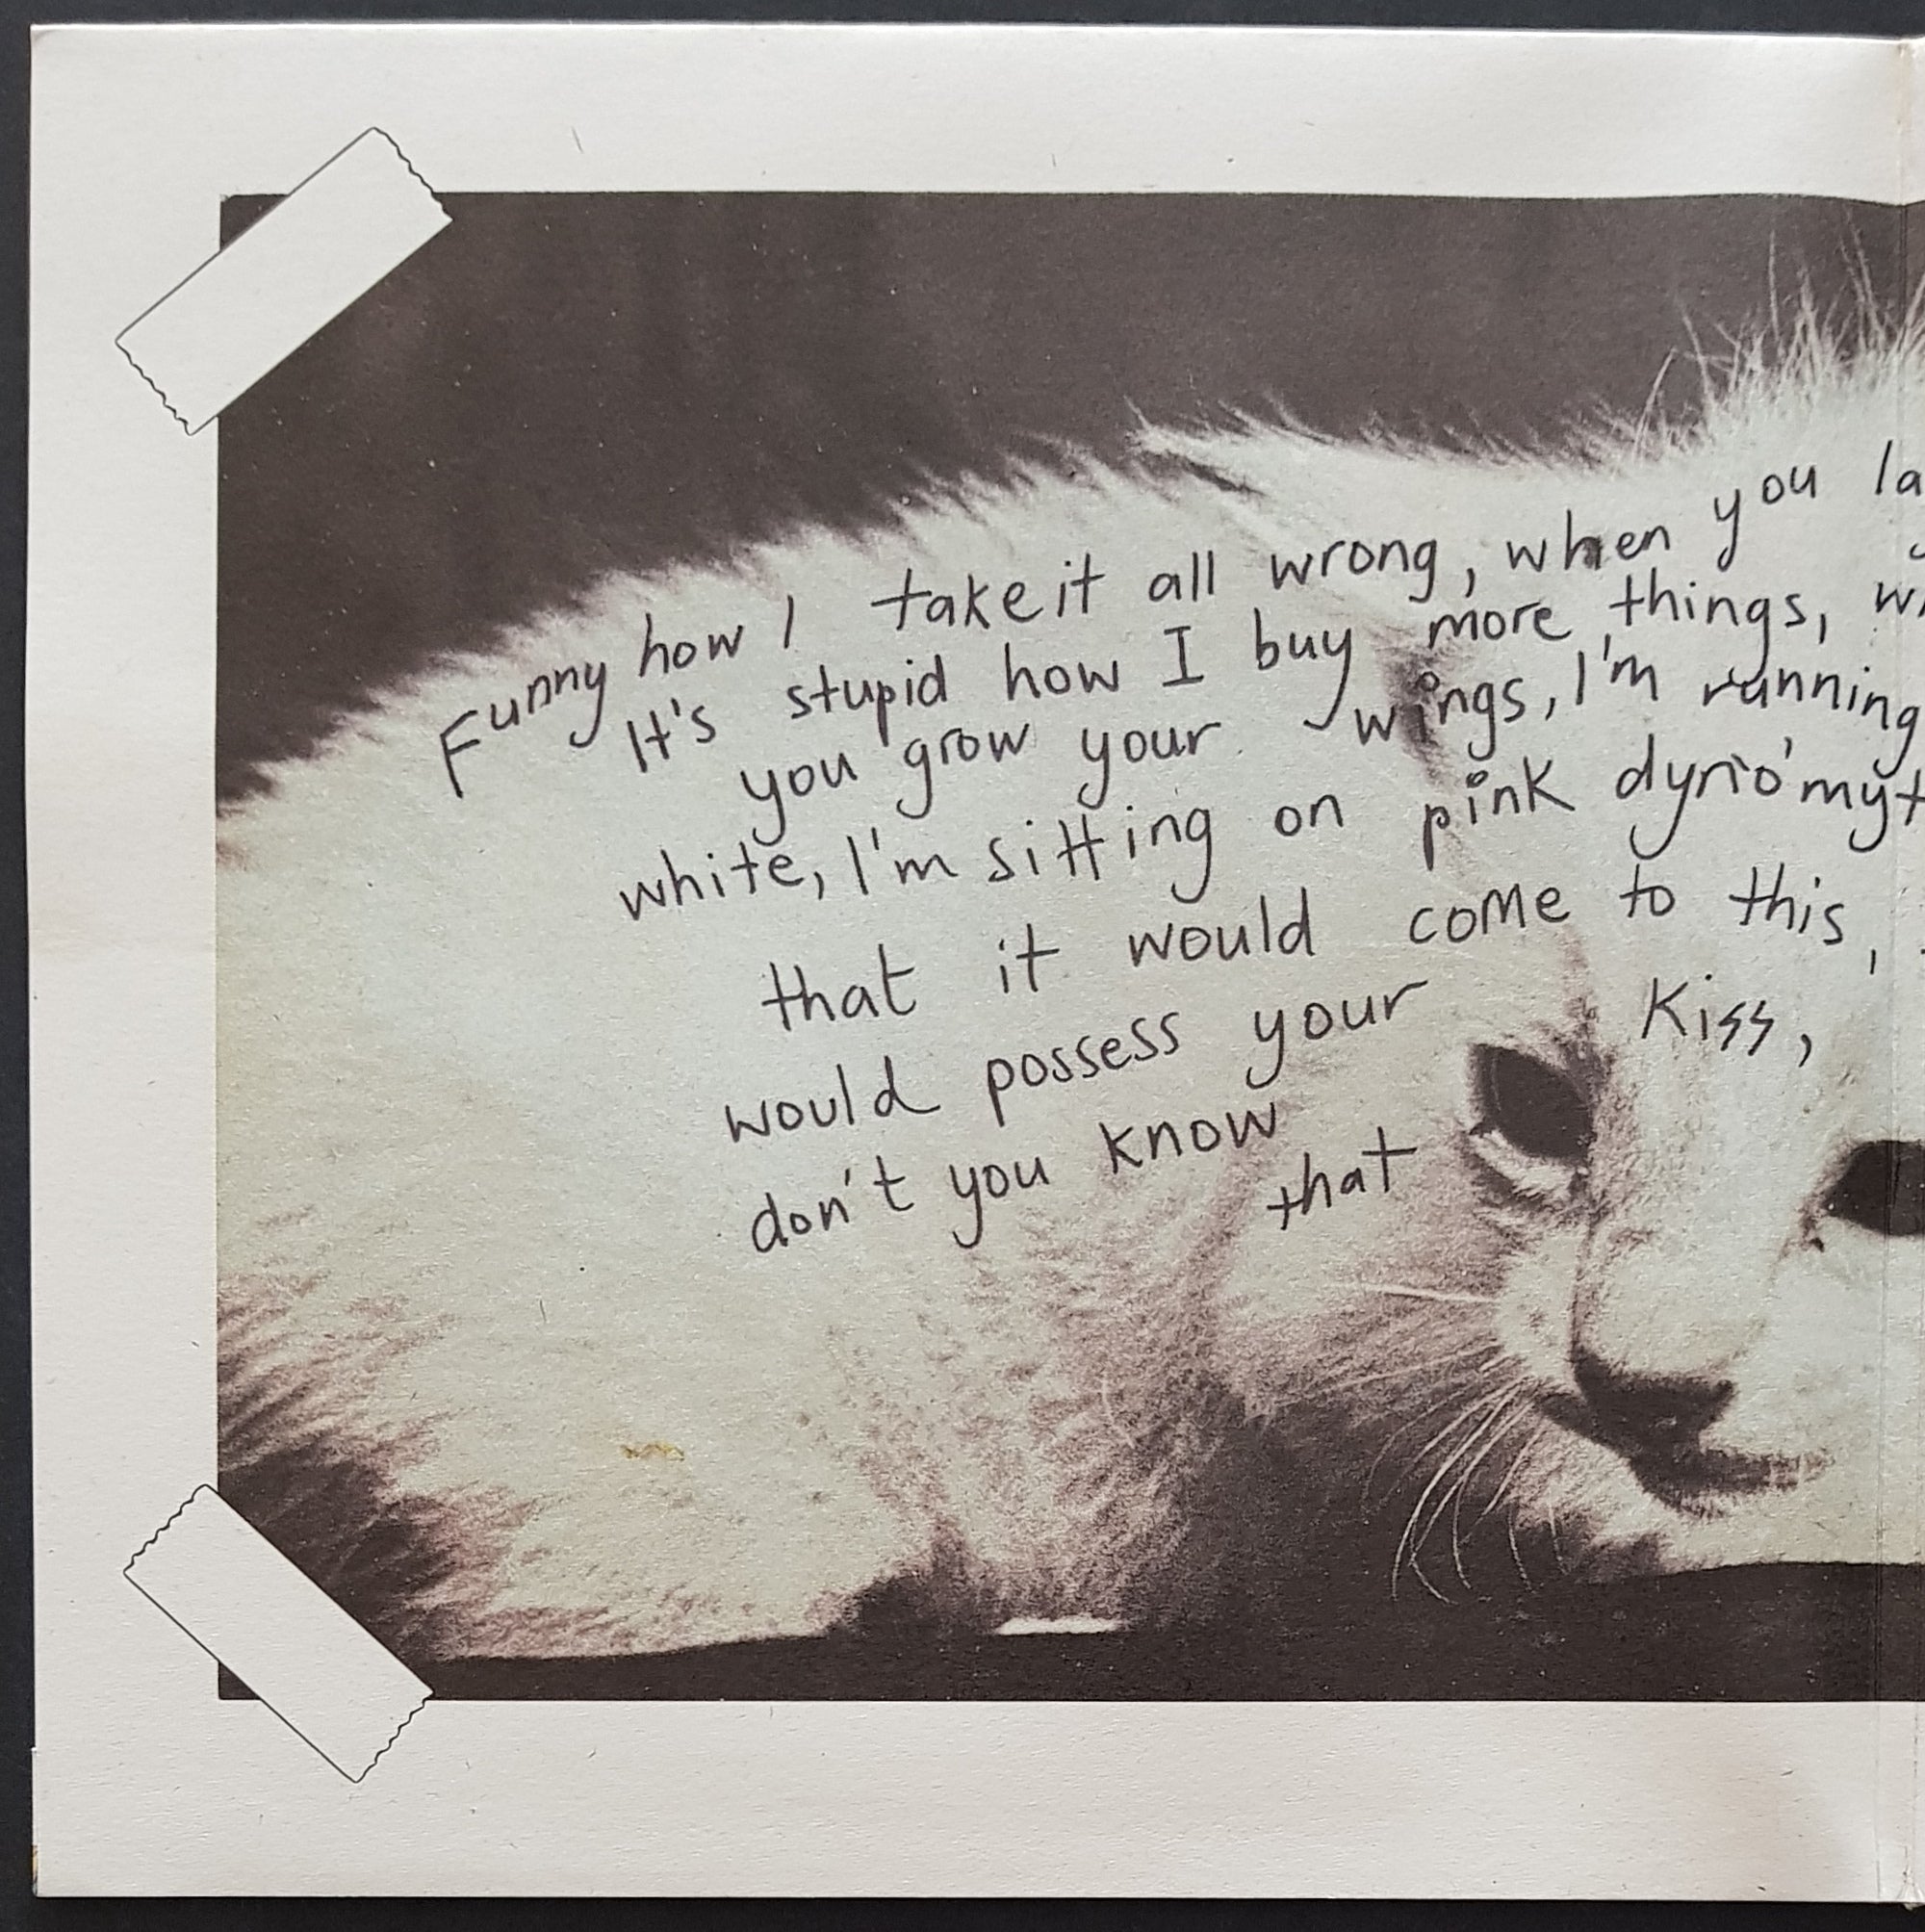 Funny how I take it all wrong, when you la
It's stupid how I buy more things, w
you grow your wings, I'm running
white, I'm sitting on pink dyno'myt
that it would come to this,
would possess your Kiss,
don't you know
that